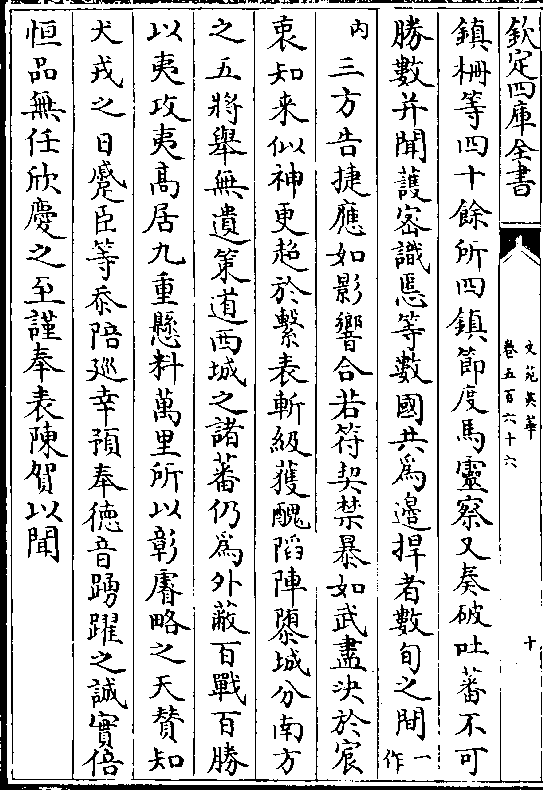 欽定四庫全書
文苑英華
卷五百六十六
十
鎮柵等四十餘所四鎮節度馬靈察又奏破吐蕃不可
勝數并聞䕶宻識惡等數國共為邉捍者數旬之間一作
内三方告捷應如影響合若符契禁暴如武盡決於宸
衷知来似神更超於繫表斬級獲醜䧟陣隳城分南方
之五將舉無遺策道西城之諸蕃仍為外蔽百戰百勝
以夷攻夷髙居九重懸料萬里所以彰睿略之天賛知
犬戎之日蹙臣等忝陪廵幸預奉徳音踴躍之誠實倍
恒品無任欣慶之至謹奉表陳賀以聞